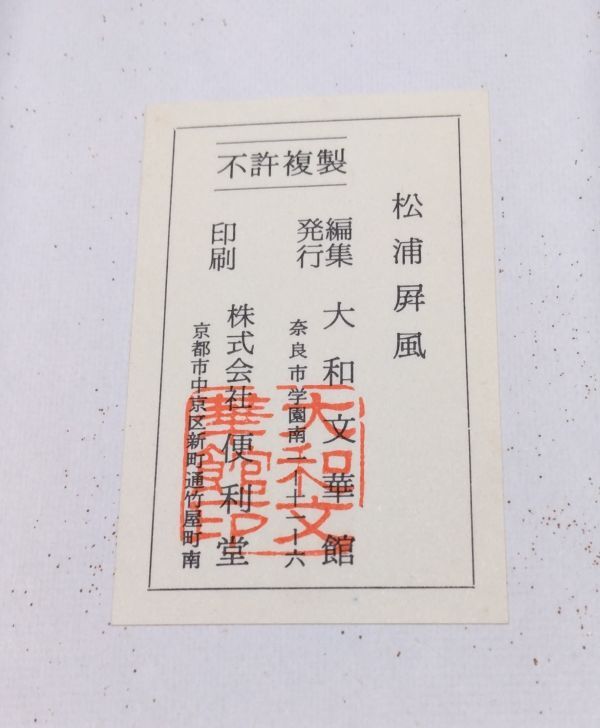 松浦屛風
不許複製
編集
発行
大和文華館
奈良市学園南一ー十一ー六
印刷
株式会社便利堂
京都市中京区新町通竹屋町南
大和文
華館印